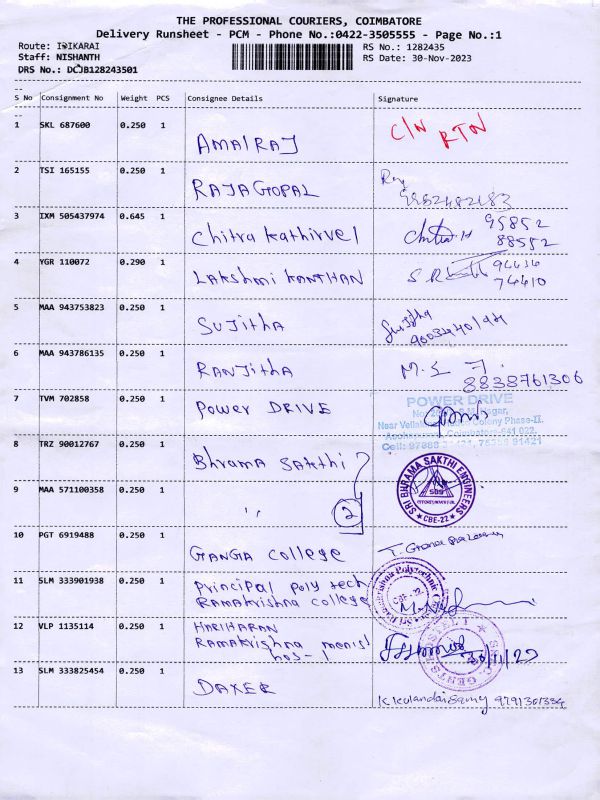 THE PROFESSIONAL COURIERS, COIMBATORE
Delivery Runsheet - PCM - Phone No.:0422-3505555 - Page No.:1
Route: IDIKARAI
Staff: NISHANTH
DRS No.: DCJB128243501
RS No.: 1282435
RS Date: 30-Nov-2023
S No Consignment No Weight PCS Consignee Details Signature
1 SKL 687600 0.250 1 AMAlRAJ C/N RTN
2 TSI 165155 0.250 1 RAJAGOPAL
9952482183
3 IXM 505437974 0.645 1 Chitra kathirvel 95852
88552
4 YGR 110072 0.290 1 LAKshmi KANTHAN
74410
5 MAA 943753823 0.250 1 SUJitHA Sujitha
6 MAA 943786135 0.250 1 RANJitHA
8838761306
7 TVM 702858 0.250 1 Power DRIVE POWER DRIVE
8 TRZ 90012767 0.250 1 Bhrama SAKthi
SRI BHRAMA SAKTHI ENGINEERS
CBE-22
9 MAA 571100358 0.250 1 " 2
10 PGT 6919488 0.250 1 GANGA college
11 SLM 333901938 0.250 1 Principal Poly tech
RAMAKrishna college
12 VLP 1135114 0.250 1 HARIHARAN
RAMAKrishna
hos-1
13 SLM 333825454 0.250 1 DAXER
K Kulandaisamy 9791301334